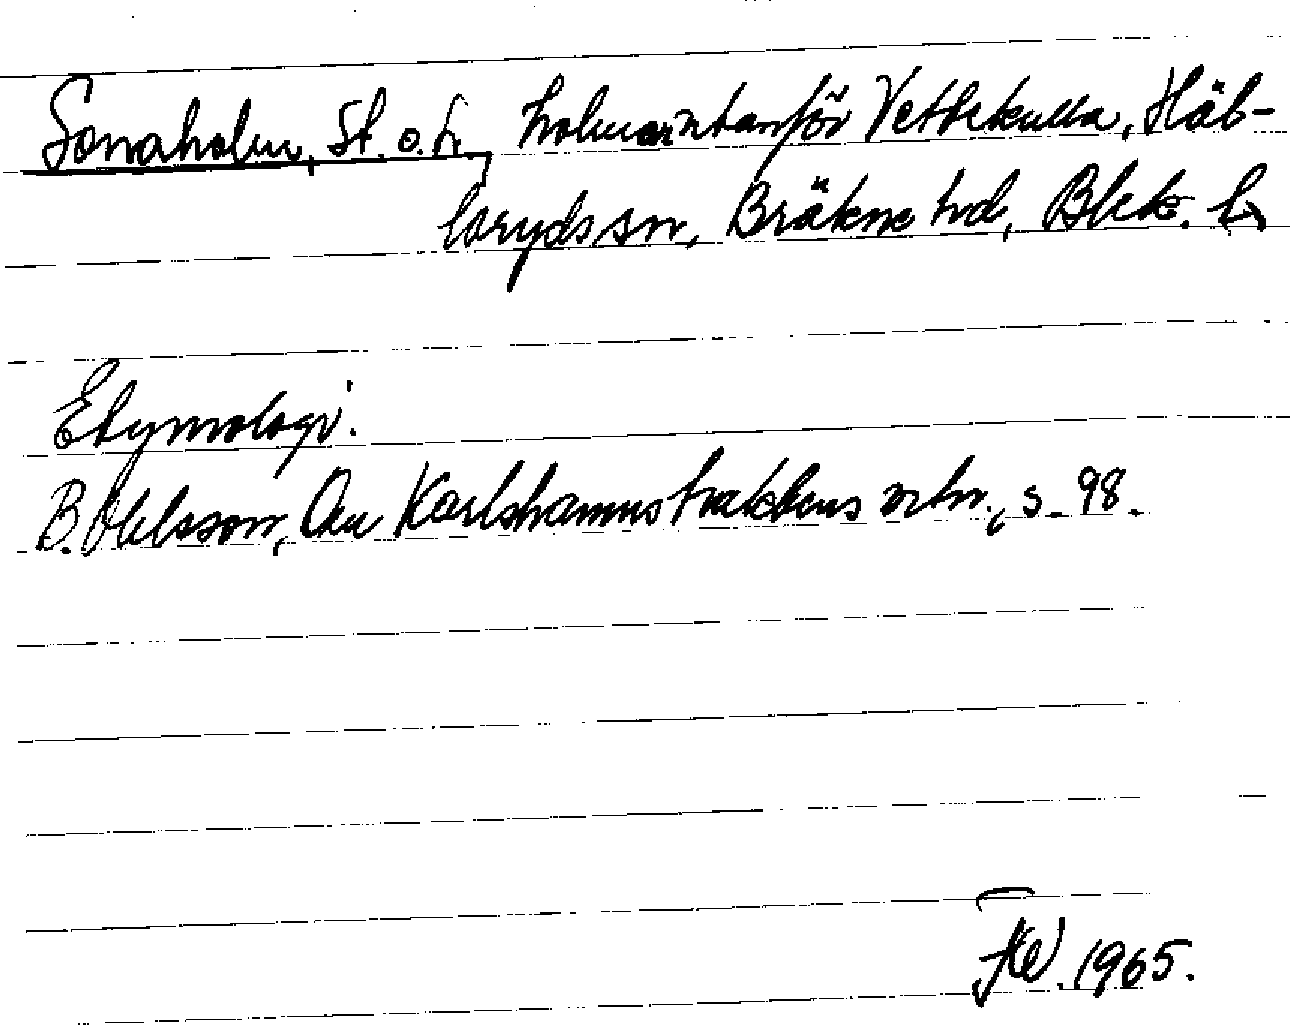 Sonaholm, St. o. L., holmar utanför Vettekulla, Häl-
larydssn, Bräkne hd, Blek. l.
Etymologi:
B. Ohlsson, Om Karlshamnstraktens ortn., s. 98.
1965.